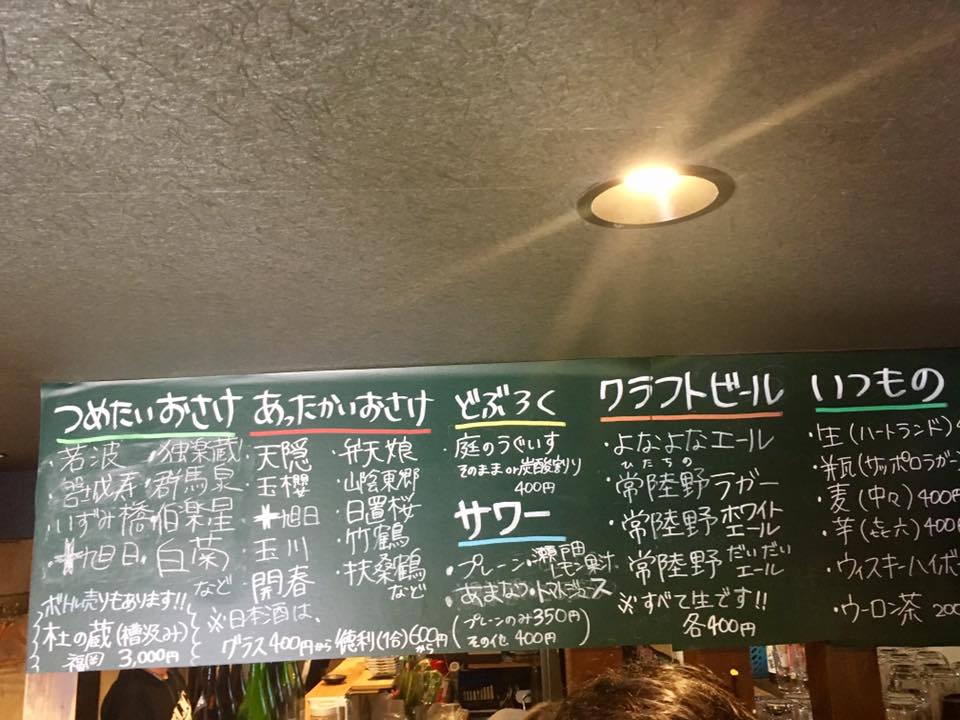 つめたいおさけ
・若波 ・独楽蔵
磐城寿 ・群馬泉
・いずみ橋 ・伯楽星
・十旭日 ・白菊
など
ボトル売りもあります!!
杜の蔵(槽汲み)
福岡 3,000円
あったかいおさけ
・天隠 ・弁天娘
・玉櫻 ・山陰東郷
・十旭日 ・日置桜
・玉川 ・竹鶴
・開春 ・扶桑鶴
など
※日本酒は、
グラス400円から 徳利(1合)600円から
どぶろく
・庭のうぐいす
そのまま or 炭酸割り
400円
サワー
・プレーン ・瀬戸田レモン果汁
・あまなつ ・トマトジュース
(プレーンのみ350円
その他 400円)
クラフトビール
・よなよなエール
ひたちの
・常陸野ラガー
・常陸野ホワイトエール
・常陸野だいだいエール
※すべて生です!!
各400円
いつもの
・生(ハートランド)
・瓶(サッポロラガー
・麦(中々)400円
・芋(㐂六)400
・ウィスキーハイボ
・ウーロン茶 200